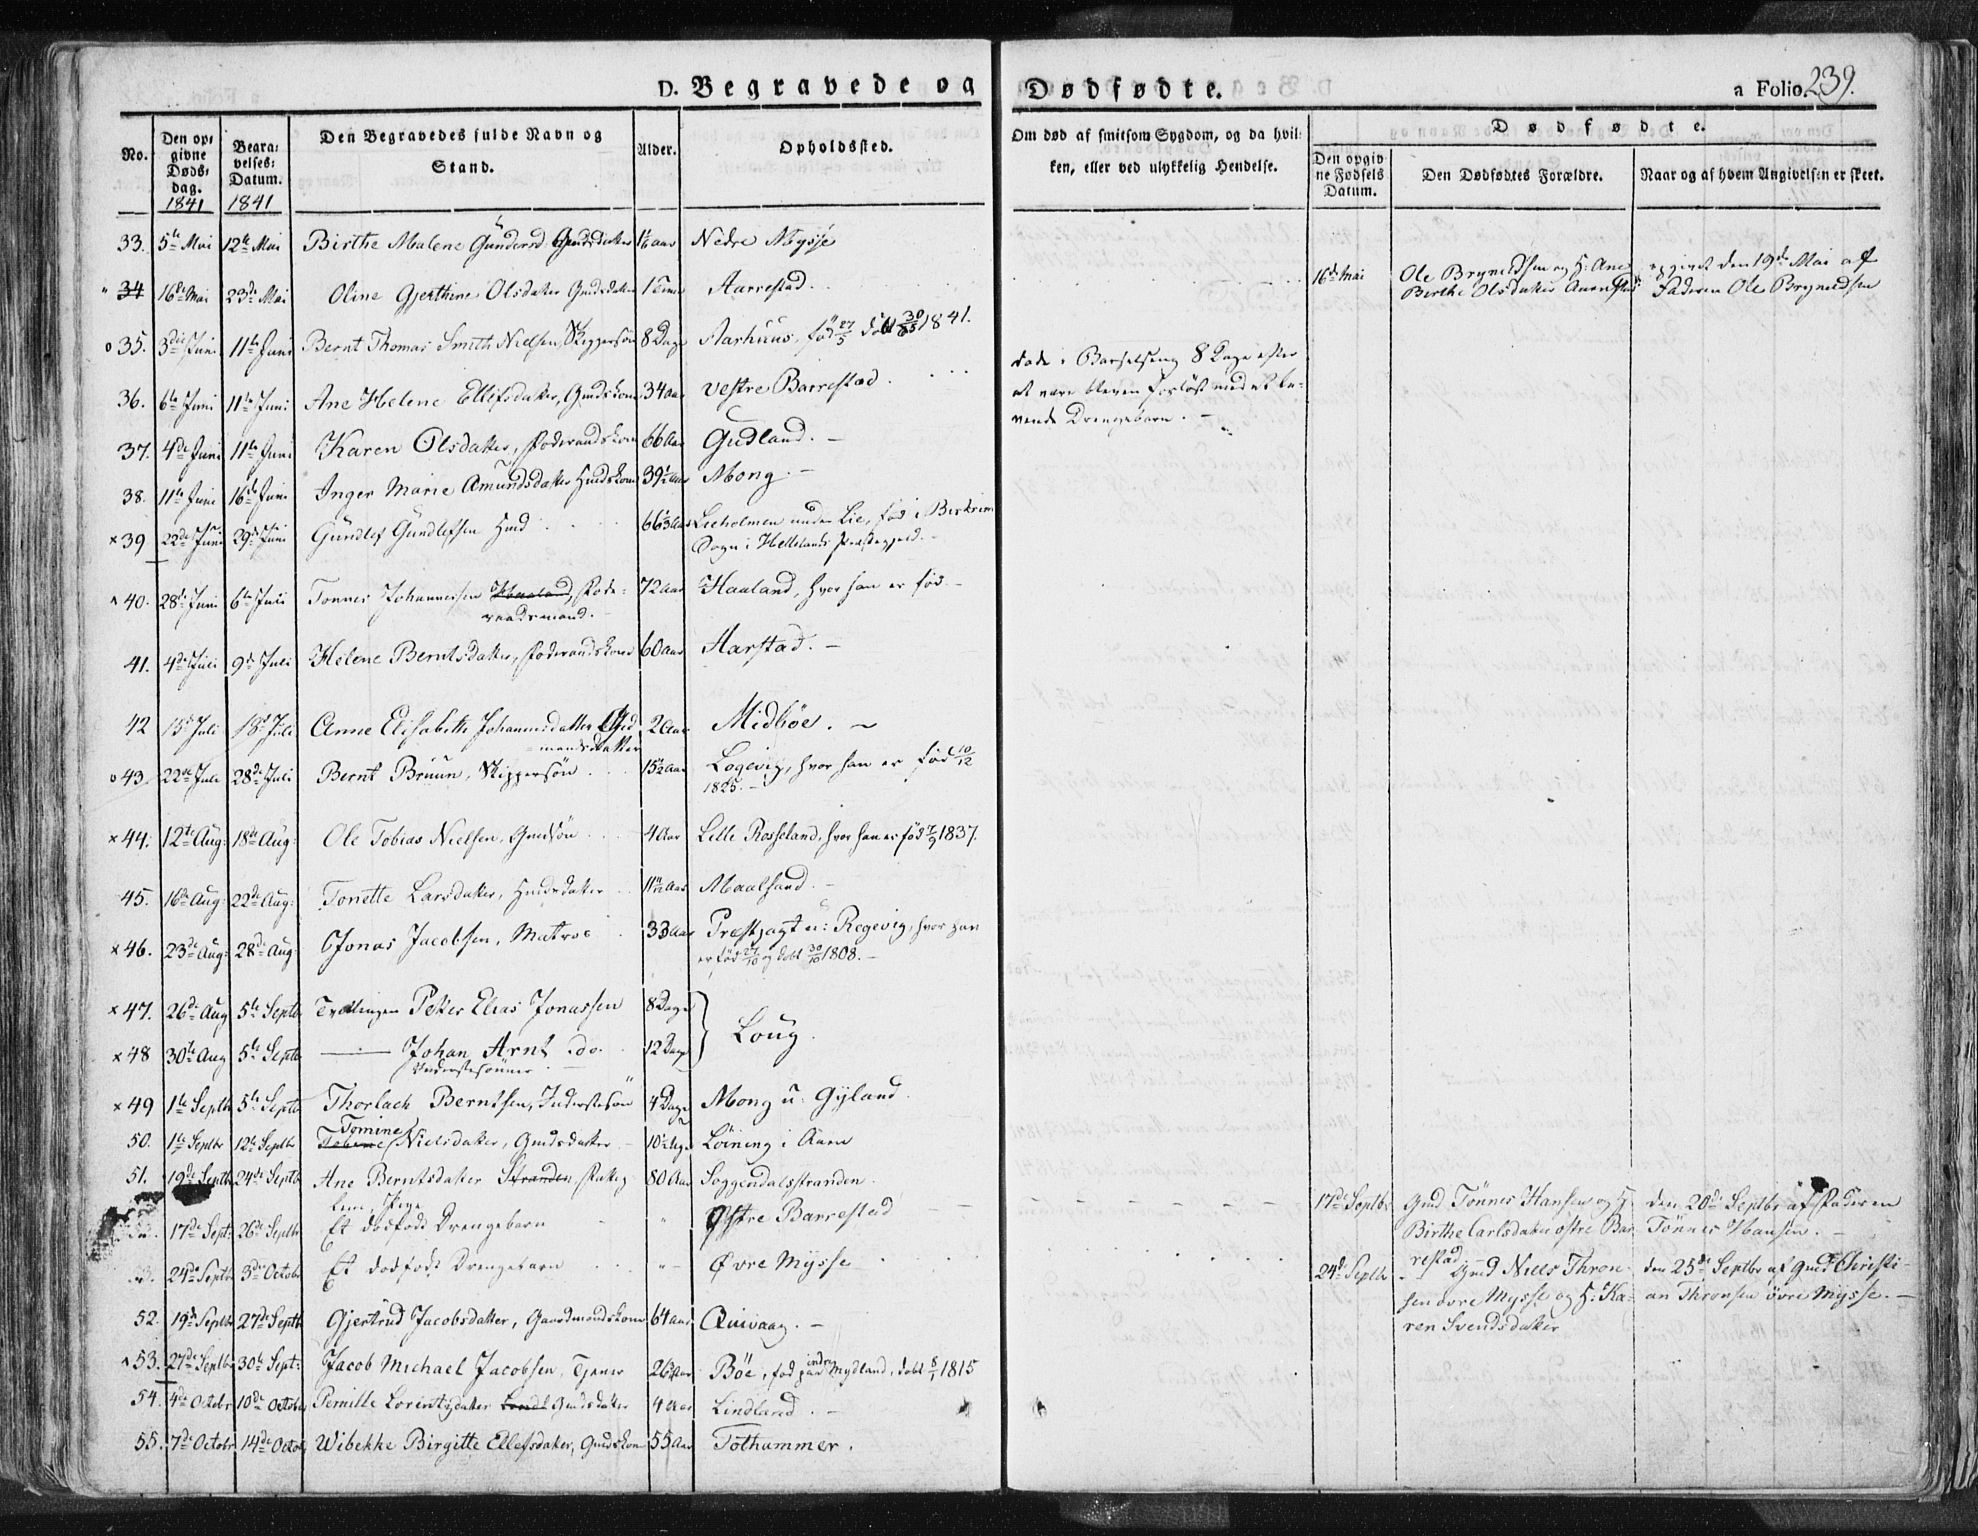 D. Begravede og Dødfødte. a Folio 239.
No. Den opgivne Døds-dag. 1841 Begravelses-Datum. 1841 Den Begravedes fulde Navn og Stand. Alder. Opholdssted. Om død af smitsom Sygdom, og da hvilken, eller ved ulykkelig Hendelse.
Dødfødte.
Den opgivne Fødsels Datum. Den Dødfødtes Forældre. Naar og af hvem Angivelsen er skeet.
33. 5te Mai 12te Mai Birthe Malene Gunders Nedre Mysse
34 16de Mai 23de Mai Oline Gjerthine Olsdatter Gmdsdatter Aarrestad.
16de Mai Ole Bryneldsen og H: Ane Birthe Olsdatter opgivet den 19de Mai af Faderen Ole Bryneldsen
35. 3die Juni 11te Juni Bernt Thomas Smith Nielsen, Skippersøn 8 Dage Aarhuus. 1841.
36. 6te Juni 11te Juni Ane Helene Ellefsdatter, Gmdskone 34 Aar vestre Barrestad.
døde i Barselseng 8 Dage efter
at være bleven forløst med et le-
vende Drengebarn.
37. 4de Juni 11te Juni Karen Olsdatter, Føderaadskone 66 Aar Gudland.
38. 11te Juni 16de Juni Inger Marie Amundsdatter Huusdskone 39½ Aar Mong.
39 22de Juni 29de Juni Gundlef Gundlefsen Hmd 66⅓ Aar Lieholmen under Lie, fød i Birkrim
Sogn i Hellelands Præstegjeld.
40. 28de Juni 6te Juli Tønnes Johannessen Haaland, Føde-
raadsmand. 72 Aar Haaland, hvor han er fød
41. 4de Juli 9de Juli Helene Berntsdatter, Føderaadskone 60 Aar Aarstad.
42 15de Juli 18de Juli Anne Elisabeth Johannesdatter Gmd
mandsdatter 2 Aar Midbøe.
43. 22de Juli 28de Juli Bernt Bruun, Skippersøn 15½ Aar Logevig, hvor han er fød 10/12
1825.
44. 12te Aug: 18de Aug: Ole Tobias Nielsen, Gmdsøn 4 Aar Lille Rosseland, hvor han er fød 7/9 1837.
45. 16de Aug: 22de Aug: Tonette Larsdatter, Huusdsdatter 11 Aar Maalsand.
46. 23de Aug: 28de Aug: Jonas Jacobsen, Matros 33 Aar Prestjagt u: Regevig, hvor han
er fød 27/10 og døbt 30/10 1808.
47. 26de Aug 5te Septb Tvillingen Peter Elias Jonassen 8 Dage
48 30te Aug 5te Septb Johan Arnt do. 12 Dage Loug.
Inderstesønner
49 1te Septb 5te Septb Thorlach Berntsen, Inderstesøn 4 Dage Mong u: Gyland.
50. 1te Septbr 12te Septbr Tomine Nielsdatter, Gmdsdatter 10½ Løining i Aaen
51. 19de Septb 24de Septb Ane Berntsdatter Stranden, Fattig-
lem, Pige 80 Aar Soggendalsstranden.
17de Sept: 26de Septbr Et dødfødt Drengebarn Østre Barrestad
17de Septbr Gmd Tønnes Hansen og H: Birthe Carlsdatter østre Bar-
restad den 20de Septbr af Faderen
Tønnes Hansen.
24de Septbr 3die Octobr Et dødfødt Drengebarn Øvre Mysse
24de Septbr Gmd Niels Thron-
sen øvre Mysse og H: Ka-
ren Svendsdatter den 25de Septbr af Gmd Christi-
an Thronsen øvre Mysse.
52. 19de Septbr 27de Septb Gjertrud Jacobsdatter, Gaardmandskone 64 Aar Quivaag.
53. 27de Septbr 30te Sept: Jacob Michael Jacobsen, Tjener 26 Aar Bøe, fød paa indre Mydland, døbt 1815
54. 4de Octobr 10de Octobr Pernille Lorentzdatter Gmdsdatter 4 Aar Lindland.
55. 7de Octobr 14de Octob Wibekke Birgitte Ellefsdatter, Gmdskone 55 Aar Tothammer.